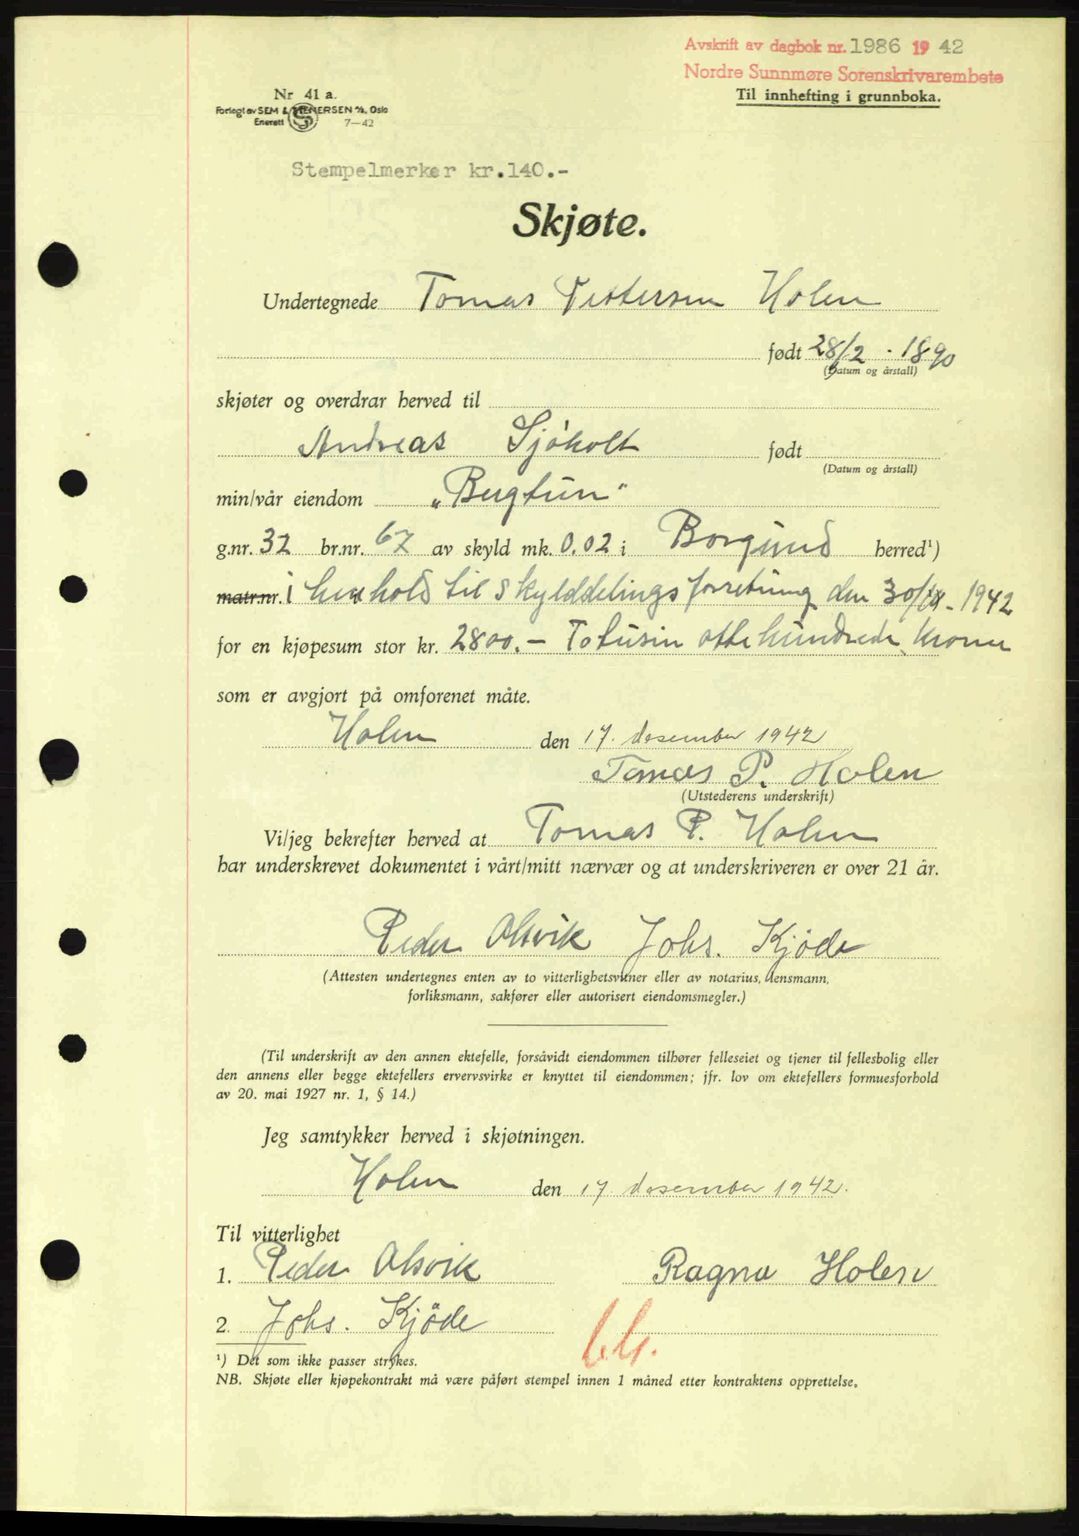 Avskrift av dagbok nr. 1986 19 42
Nordre Sunnmøre Sorenskrivarembete
Til innhefting i grunnboka.
Nr 41 a.
Forlegt av SEM & STENERSEN A/S, Oslo
Enerett 7—42
Stempelmerker kr.140.-
Skjøte.
Undertegnede Tomas Pettersen Holen
født 28/2 - 1890
(Datum og årstall)
skjøter og overdrar herved til
Andreas Sjøholt født
(Datum og årstall)
min/vår eiendom „Bugtun"
g.nr. 32 br.nr. 67 av skyld mk. 0.02 i Borgund herred¹)
matr.nr. i henhold til skylddelingsforretning den 30/ - 1942
for en kjøpesum stor kr. 2800.- Totusin ottehundrede kroner
som er avgjort på omforenet måte.
Holen den 17. desember 1942
Tomas P. Holen
(Utstederens underskrift)
Vi/jeg bekrefter herved at Tomas P. Holen
har underskrevet dokumentet i vårt/mitt nærvær og at underskriveren er over 21 år.
Peder Alsvik Johs. Kjöde
(Attesten undertegnes enten av to vitterlighetsvitner eller av notarius, lensmann,
forliksmann, sakfører eller autorisert eiendomsmegler.)
(Til underskrift av den annen ektefelle, forsåvidt eiendommen tilhører felleseiet og tjener til fellesbolig eller
den annens eller begge ektefellers ervervsvirke er knyttet til eiendommen; jfr. lov om ektefellers formuesforhold
av 20. mai 1927 nr. 1, § 14.)
Jeg samtykker herved i skjøtningen.
Holen den 17. desember 1942.
Til vitterlighet
1. Peder Alsvik Ragna Holen
2. Johs. Kjöde
¹) Det som ikke passer strykes.
NB. Skjøte eller kjøpekontrakt må være påført stempel innen 1 måned etter kontraktens opprettelse.